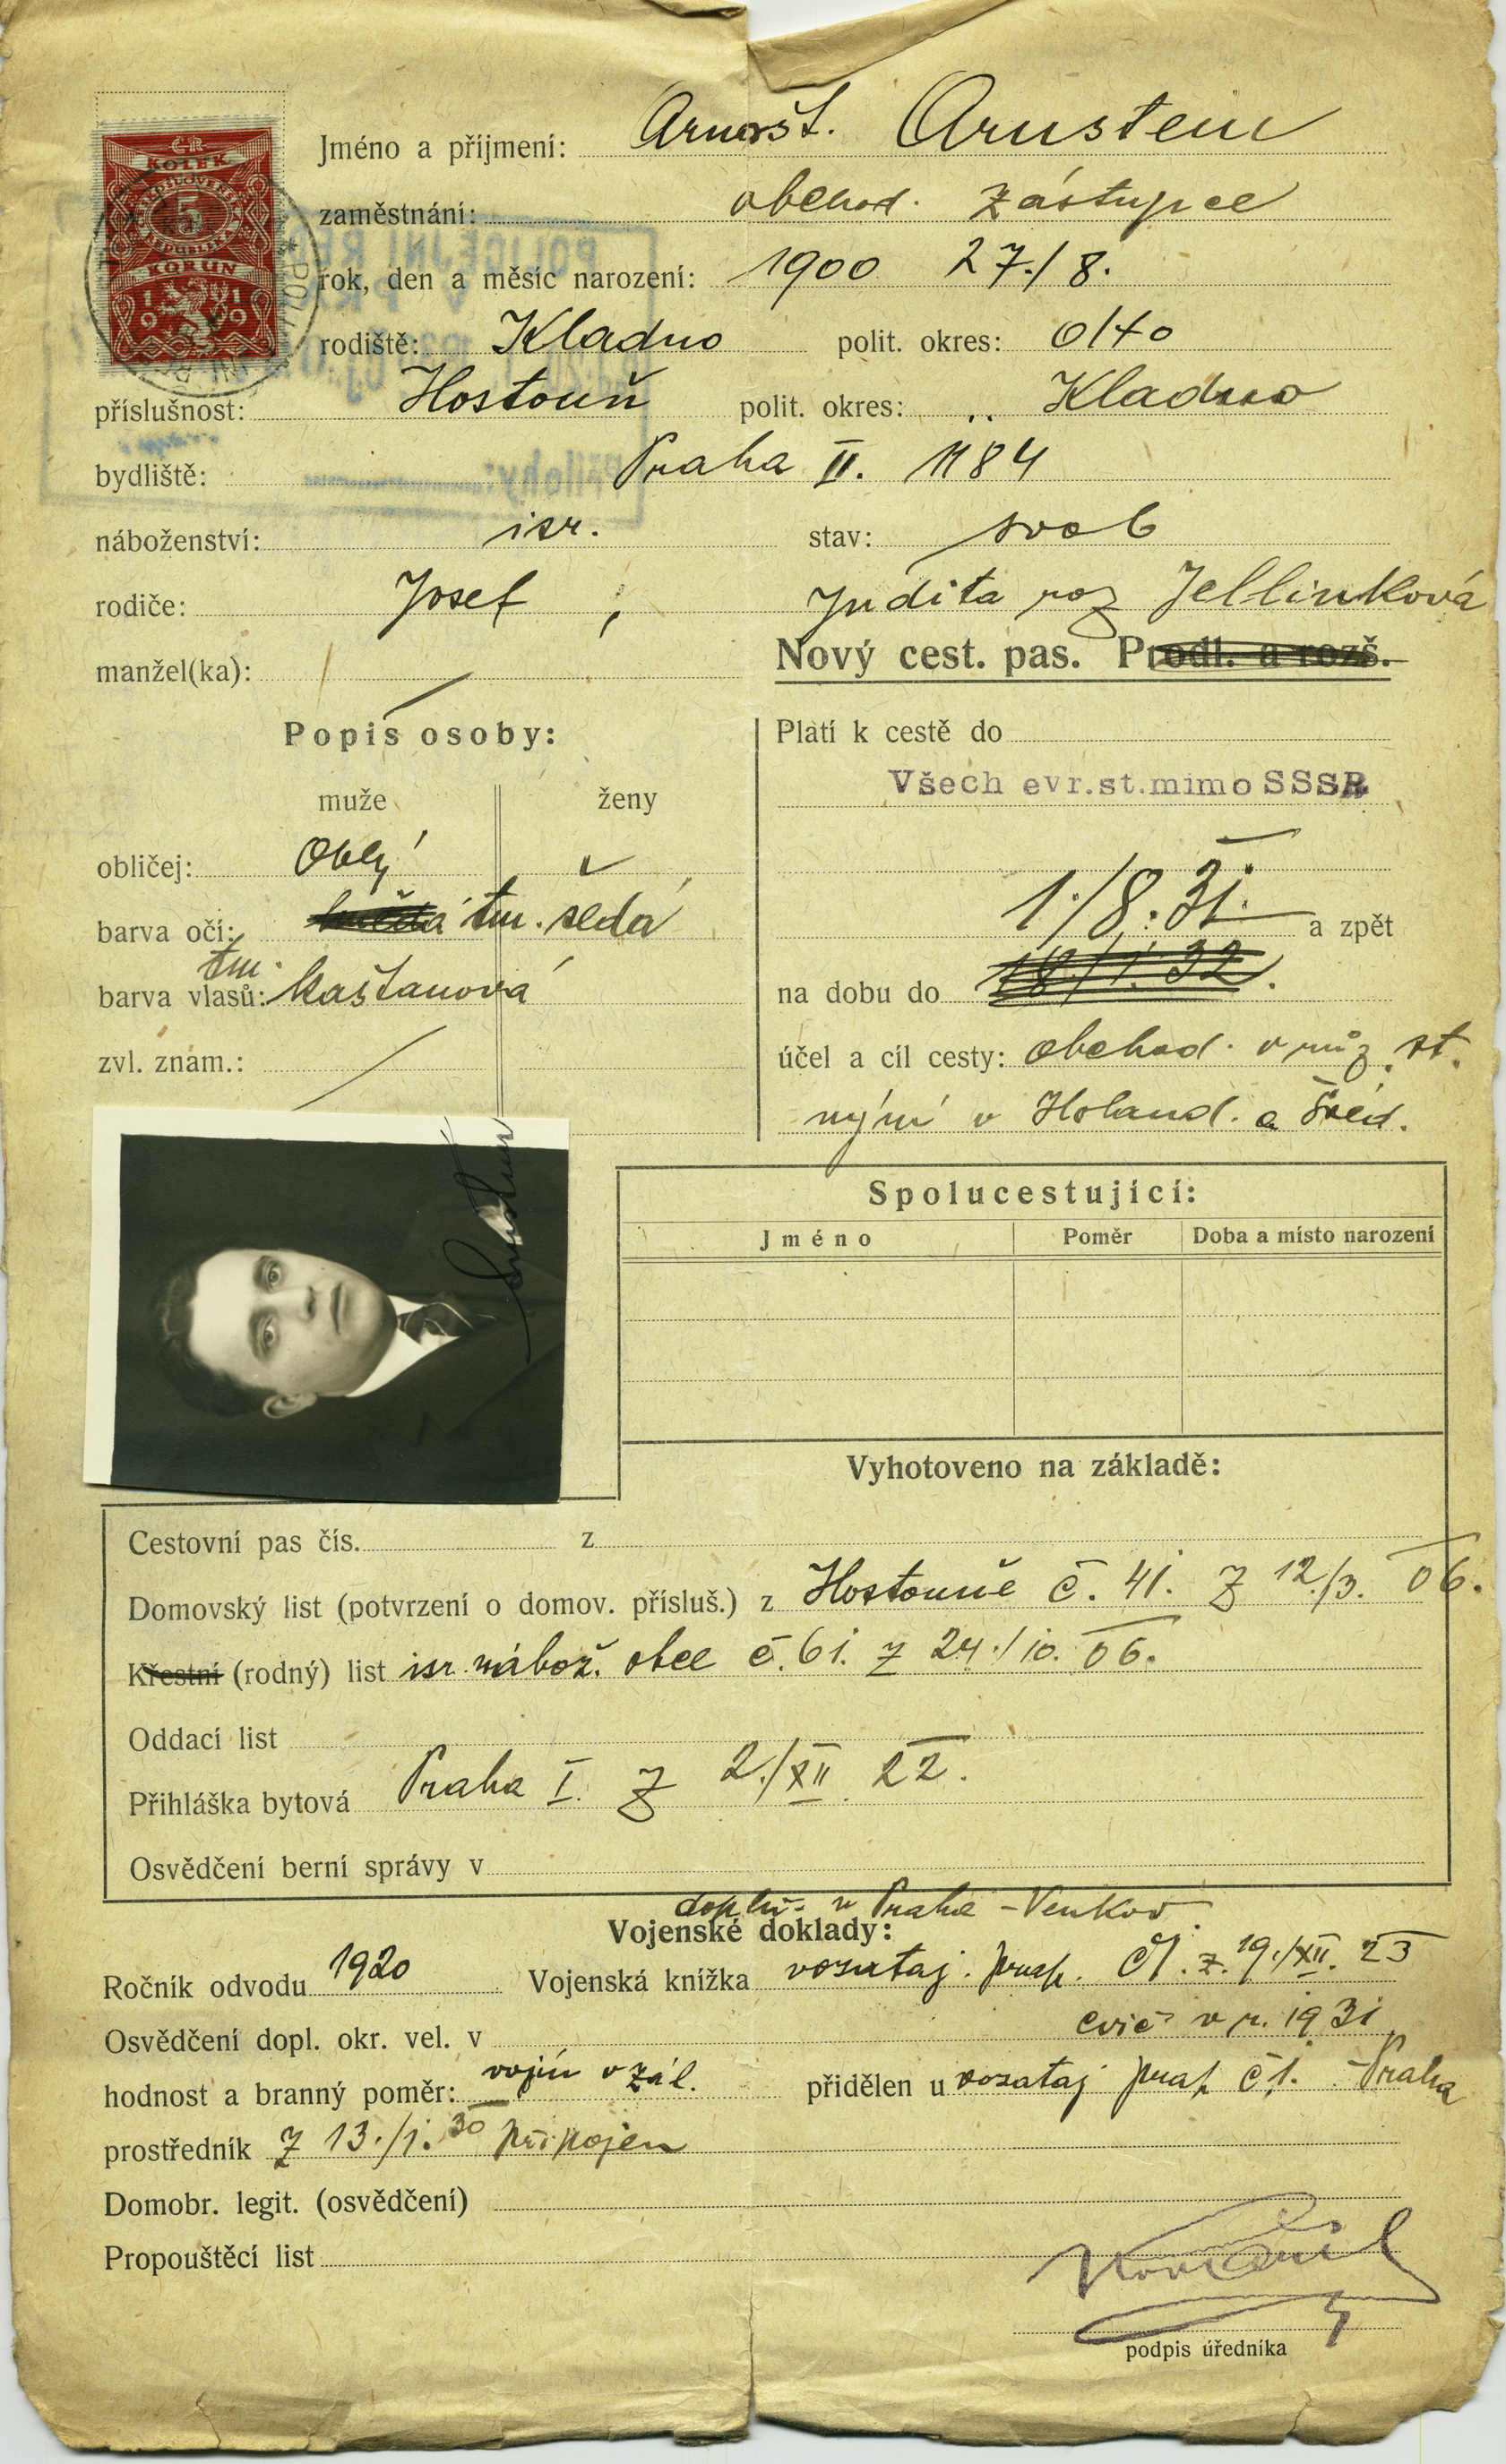 ČR
KOLEK
ČESKOSLOVENSKÁ
5
REPUBLIKA
KORUN
1919
Jméno a příjmení: Arnošt. Arnstein
zaměstnání: obchod. zástupce
POLICEJNÍ
rok, den a měsíc narození: 1900 27./8.
rodiště: Kladno polit. okres: dtto
příslušnost: Hostouň polit. okres: .. Kladno
bydliště: Praha II. 1184
Přílohy:
náboženství: isr. stav: svob
rodiče: Josef ; Judita roz Jellinková
manžel(ka): /
Nový cest. pas. Prodl. a rozš.
Popis osoby:
muže ženy
obličej: oblý
barva očí: hnědá tm. šedá
barva vlasů: tm. kaštanová
zvl. znam.: /
Platí k cestě do
Všech evr.st.mimo SSSR
1./8. 31. a zpět
na dobu do 18/1. 32.
účel a cíl cesty: obchod. v růz. st.
nyní v Holand. a Švéd.
Arnstein
Spolucestující:
Jméno Poměr Doba a místo narození
Vyhotoveno na základě:
Cestovní pas čís. z
Domovský list (potvrzení o domov. přísluš.) z Hostouně č. 41. z 12./3. 06.
Křestní (rodný) list isr. nábož. obce č. 61. z 24./10. 06.
Oddací list
Přihláška bytová Praha I. z 2./XII. 22.
Osvědčení berní správy v
doplň. v Praha - Venkov
Vojenské doklady:
Ročník odvodu 1920 Vojenská knížka vozataj. prap. č 1. z. 19./XII. 23
Osvědčení dopl. okr. vel. v cvič v r. 1931
hodnost a branný poměr: vojín v zál. přidělen u vozataj prap č 1. - Praha
prostředník z 13./1. 30 připojen
Domobr. legit. (osvědčení)
Propouštěcí list
podpis úředníka